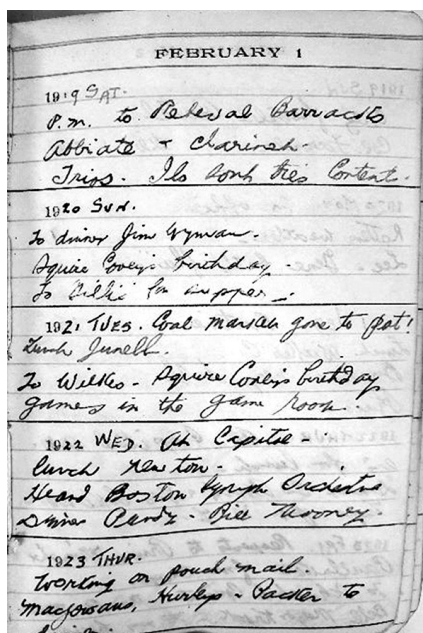 FEBRUARY 1
1919 SAT.
P.m. to Barracks
Abbiate + Clarinet
Trios. Ils sont très Content.
1920 SUN.
To dinner Jim Wyman.
Squire Covey's birthday.
To for supper
1921 TUES. Coal market gone to pot!
Lunch
To Wilkes - Squire Covey's birthday
games in the game room.
1922 WED. At Capitol -
lunch Newton.
Heard Boston Symph Orchestra
Dinner Purdy - Bill Mooney.
1923 THUR.
Working on pouch mail.
MacGowans, Hurleys - to